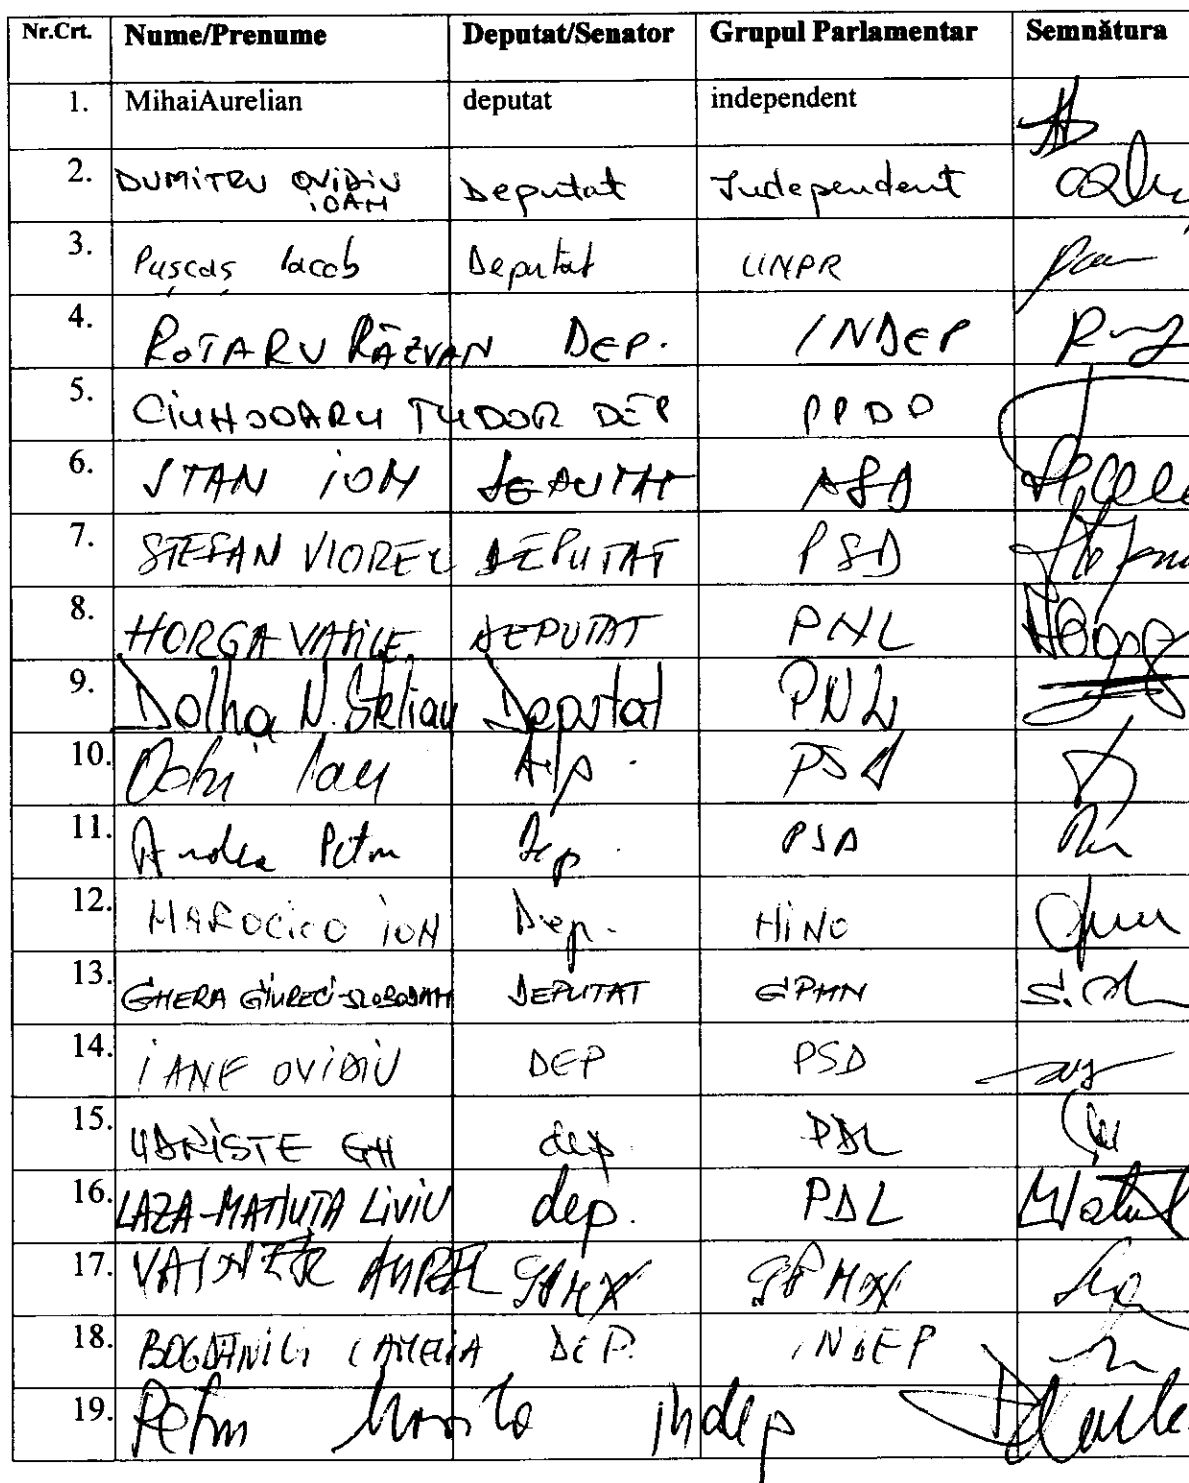 Nr.Crt. Nume/Prenume Deputat/Senator Grupul Parlamentar Semnătura
1. MihaiAurelian deputat independent
2. DUMITRU OVIDIU IOAN Deputat Independent
3. Pușcaș Iacob Deputat UNPR
4. ROTARU RĂZVAN DEP. INDEP
5. CIUHODARU TUDOR DEP PPDD
6. STAN ION PSD
7. STEFAN VIOREL DEPUTAT PSD
8. HORGA VASILE DEPUTAT PNL
9. Dolha N. Stelian Deputat PNL
10. Dep. PSD
11. Andea Petru Dep. PSD
12. MAROCICO ION Dep. MINO
13. GHERA GIURECI-SLOBODAN DEPUTAT GPMN
14. IANE OVIDIU DEP PSD
15. UDRISTE GH dep PDL
16. LAZA-MATIUTA LIVIU dep. PDL
17. VAINER AUREL GPMN
18. BOGDANICI CAMELIA DEP. INDEP
19. Petru indep